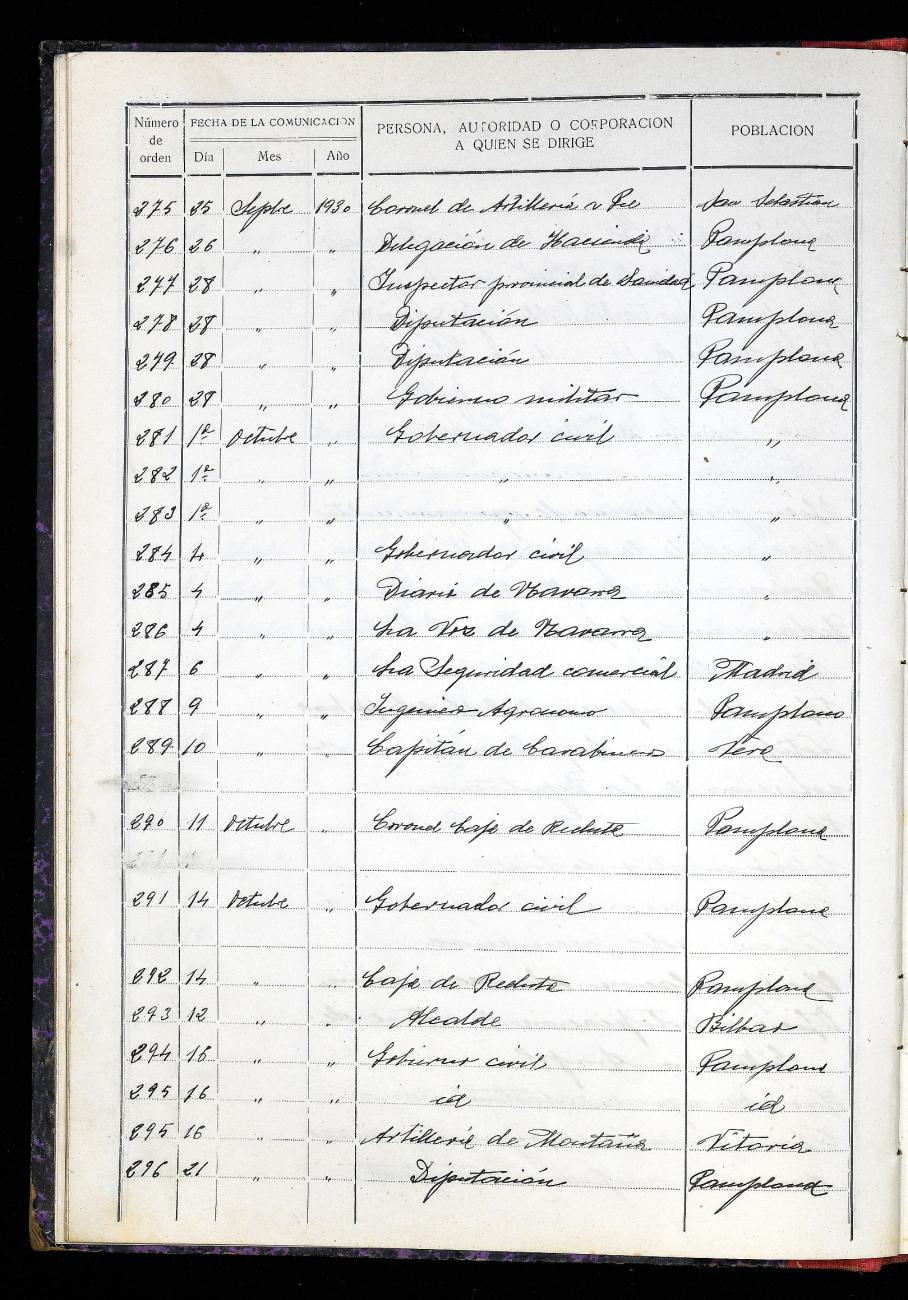 Número de orden FECHA DE LA COMUNICACION PERSONA, AUTORIDAD O CORPORACION A QUIEN SE DIRIGE POBLACION
Día Mes Año
275 25 Sepbre 1930 Coronel de Artillería San Sebastian
276 26 " " Delegación de Hacienda Pamplona
277 28 " " Inspector provincial de Sanidad Pamplona
278 28 " " Diputación Pamplona
279 28 " " Diputación Pamplona
280 28 " " Gobierno militar Pamplona
281 1º Octubre " Gobernador civil "
282 1º " " " "
283 1º " " " "
284 4 " " Gobernador civil "
285 4 " " Diario de Navarra "
286 4 " " La Voz de Navarra "
287 6 " " La Seguridad comercial Madrid
288 9 " " Ingeniero Agronomo Pamplona
289 10 " " Capitán de Carabineros Vera
290 11 Octubre " Coronel Caja de Recluta Pamplona
291 14 Octubre " Gobernador civil Pamplona
292 14 " " Caja de Recluta Pamplona
293 12 " " Alcalde Bilbao
294 16 " " Gobierno civil Pamplona
295 16 " " id id
295 16 " " Artillería de Montaña Vitoria
296 21 " " Diputación Pamplona